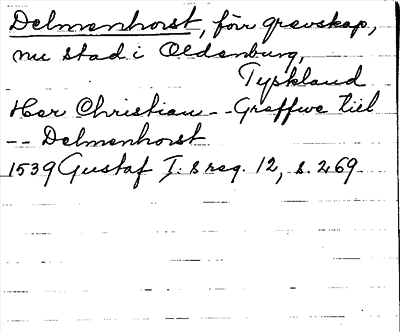 Delmenhorst, förr grevskap,
nu stad i Oldenburg,
Tyskland
Her Christian -- Graffwe tiil
-- Delmenhorst
1539 Gustaf I:s reg. 12, s. 269